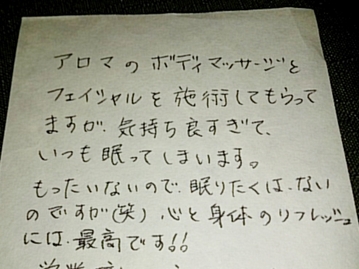 アロマの ボディマッサージと
フェイシャルを 施術してもらって
ますが、気持ち良すぎて、
いつも眠ってしまいます。
もったいないので、眠りたくは、ない
のですが(笑) 心と身体のリフレッシュ
には、最高です!!